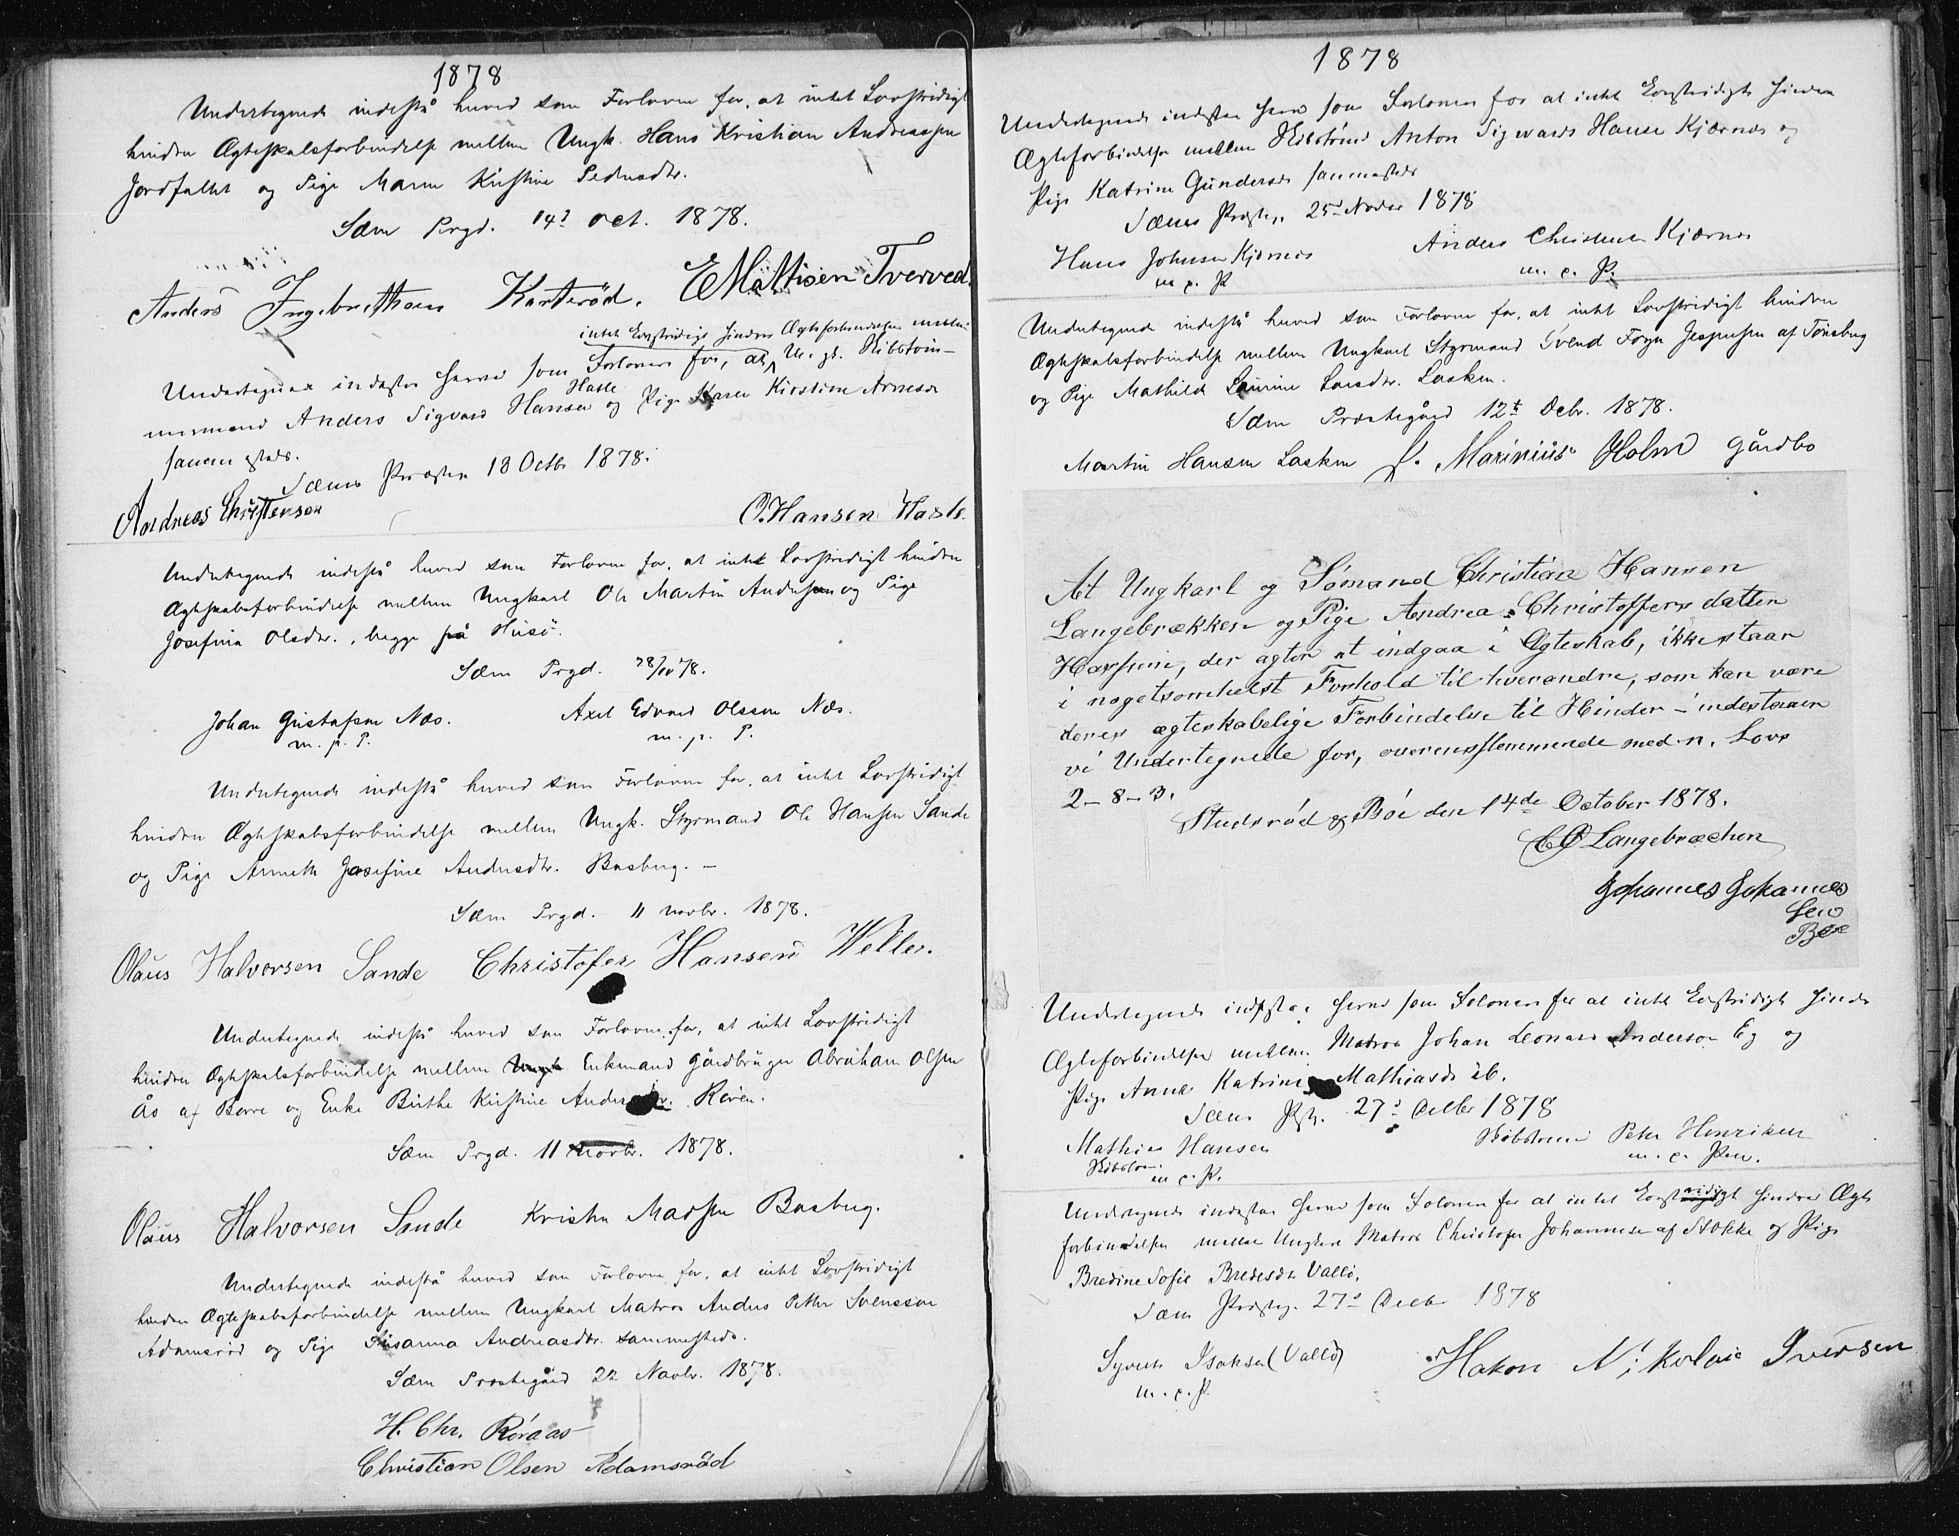 1878
Undertegnede indestå herved som Forlovere for, at intet Lovstridigt
hindrer Ægteskabsforbindelse mellem Ungk. Hans Kristian Andreassen
Jordfaldet og Pige Maren Kirstine Pedersdtr.
Sæm Prgd. 14de oct. 1878.
Anders Ingebrethsen Karterød. E Mattisen Tverved
intet Lovstridigt hindrer Ægteforbindelsen mellem
Undertegnede indestaa herved som Forlovere for, at Ungk. Skibstøm-
mermand Anders Sigvard Hansen Hasle og Pige Karen Kirstine Arnesdr
sammesteds.
Sæms Præsteg 18 Octb 1878.
Andreas Christensen O. Hansen Hasle.
Undertegnede indestå herved som Forlovere for, at intet Lovstridigt hindrer
Ægteskabsforbindelse mellem Ungkarl Ole Martin Andersen og Pige
Josefine Olsdtr., begge på Husø.
Sæm Prgd. 28/10 78.
Johan Gustafsen Næs. Axel Edvard Olsson Næs.
m. p. P. m. p. P.
Undertegnede indestå herved som Forlovere for, at intet Lovstridigt
hindrer Ægteskabsforbindelse mellem Ungk. Styrmand Ole Hansen Sande
og Pige Annette Josefine Andersdtr. Basberg. –
Sæm Prgd. 11 novbr. 1878.
Olaus Halvorsen Sande Christofer Hansen Weller.
Undertegnede indestå herved som Forlovere for, at intet Lovstridigt
hindrer Ægteskabsforbindelse mellem Ungk. Enkemand Gårdbruger Abraham Olsen
Ås af Borre og Enke Birthe Kirstine Andersdtr. Røren.
Sæm Prgd. 11 novbr. 1878.
Olaus Halvorsen Sande Kristen Marsen Basberg.
Undertegnede indestå herved som Forlovere for, at intet Lovstridigt
hindrer Ægteskabsforbindelse mellem Ungkarl Matros Anders Petter Svensson
Adamsrød og Pige Susanna Andreasdtr. sammesteds.
Sæm Præstegård 22 Novbr. 1878.
H. Chr. Röraas
Christian Olsen Adamsröd
1878
Undertegnede indestaa herved som Forlovere for at intet Lovstridigt hindrer
Ægteforbindelse mellem Skibstømr Anton Sigvards Hansen Kjærnes og
Pige Katrine Gundersdr sammesteds
Sæms Præsteg. 25de Novbr 1878
Hans Johnsen Kjærnes Anders Christensen Kjærnes
m. p. P. m. p. P.
Undertegnede indestå herved som Forlovere for, at intet Lovstridigt hindrer
Ægteskabsforbindelse mellem Ungkarl Styrmand Svend Foyn Jespersen af Tönsberg
og Pige Mathilde Laurine Larsdtr. Lasken.
Sæm Præstegård 12te Debr. 1878.
Martin Hansen Lasken J. Marinius Holm gårdbr
At Ungkarl og Sömand Christian Hansen
Langebrække og Pige Andrea Christoffersdatter
Harsine, der agter at indgaa i Ægteskab, ikke staar
i nogetsomhelst Forhold til hverandre, som kan være
deres ægteskabelige Forbindelse til Hinder – indestaaer
vi Undertegnede for, overensstemmende med n. Lovs
2 – 8 – 3.
Studsröd & Böe den 14de October 1878.
C O Langebræchen
Johannes Johannes
sen
Böe
Undertegnede indestaa herved som Forlovere for at intet Lovstridigt hindrer
Ægteforbindelse mellem Matros Johan Leonard Anderson Eg og
Pige Anne Katrine Mathiasdr ib.
Sæms Pstg. 27de Decbr 1878
Mathias Hansen Skibstømr Peter Henriksen
Skibstømr. m. p. Pen.
m. p. P.
Undertegnede indestaa herved som Forlovere for at intet Lovstridigt hindrer Ægte
forbindelse mellem Ungkarl Matros Christofer Johannesen af Stokke og Pige
Bredine Sofie Bredesdr Vallø.
Sæm Præsteg. 27de Decbr 1878
Syvert Isaksen (Vallø) Hakon Nikolai Iversen
m. p. P.